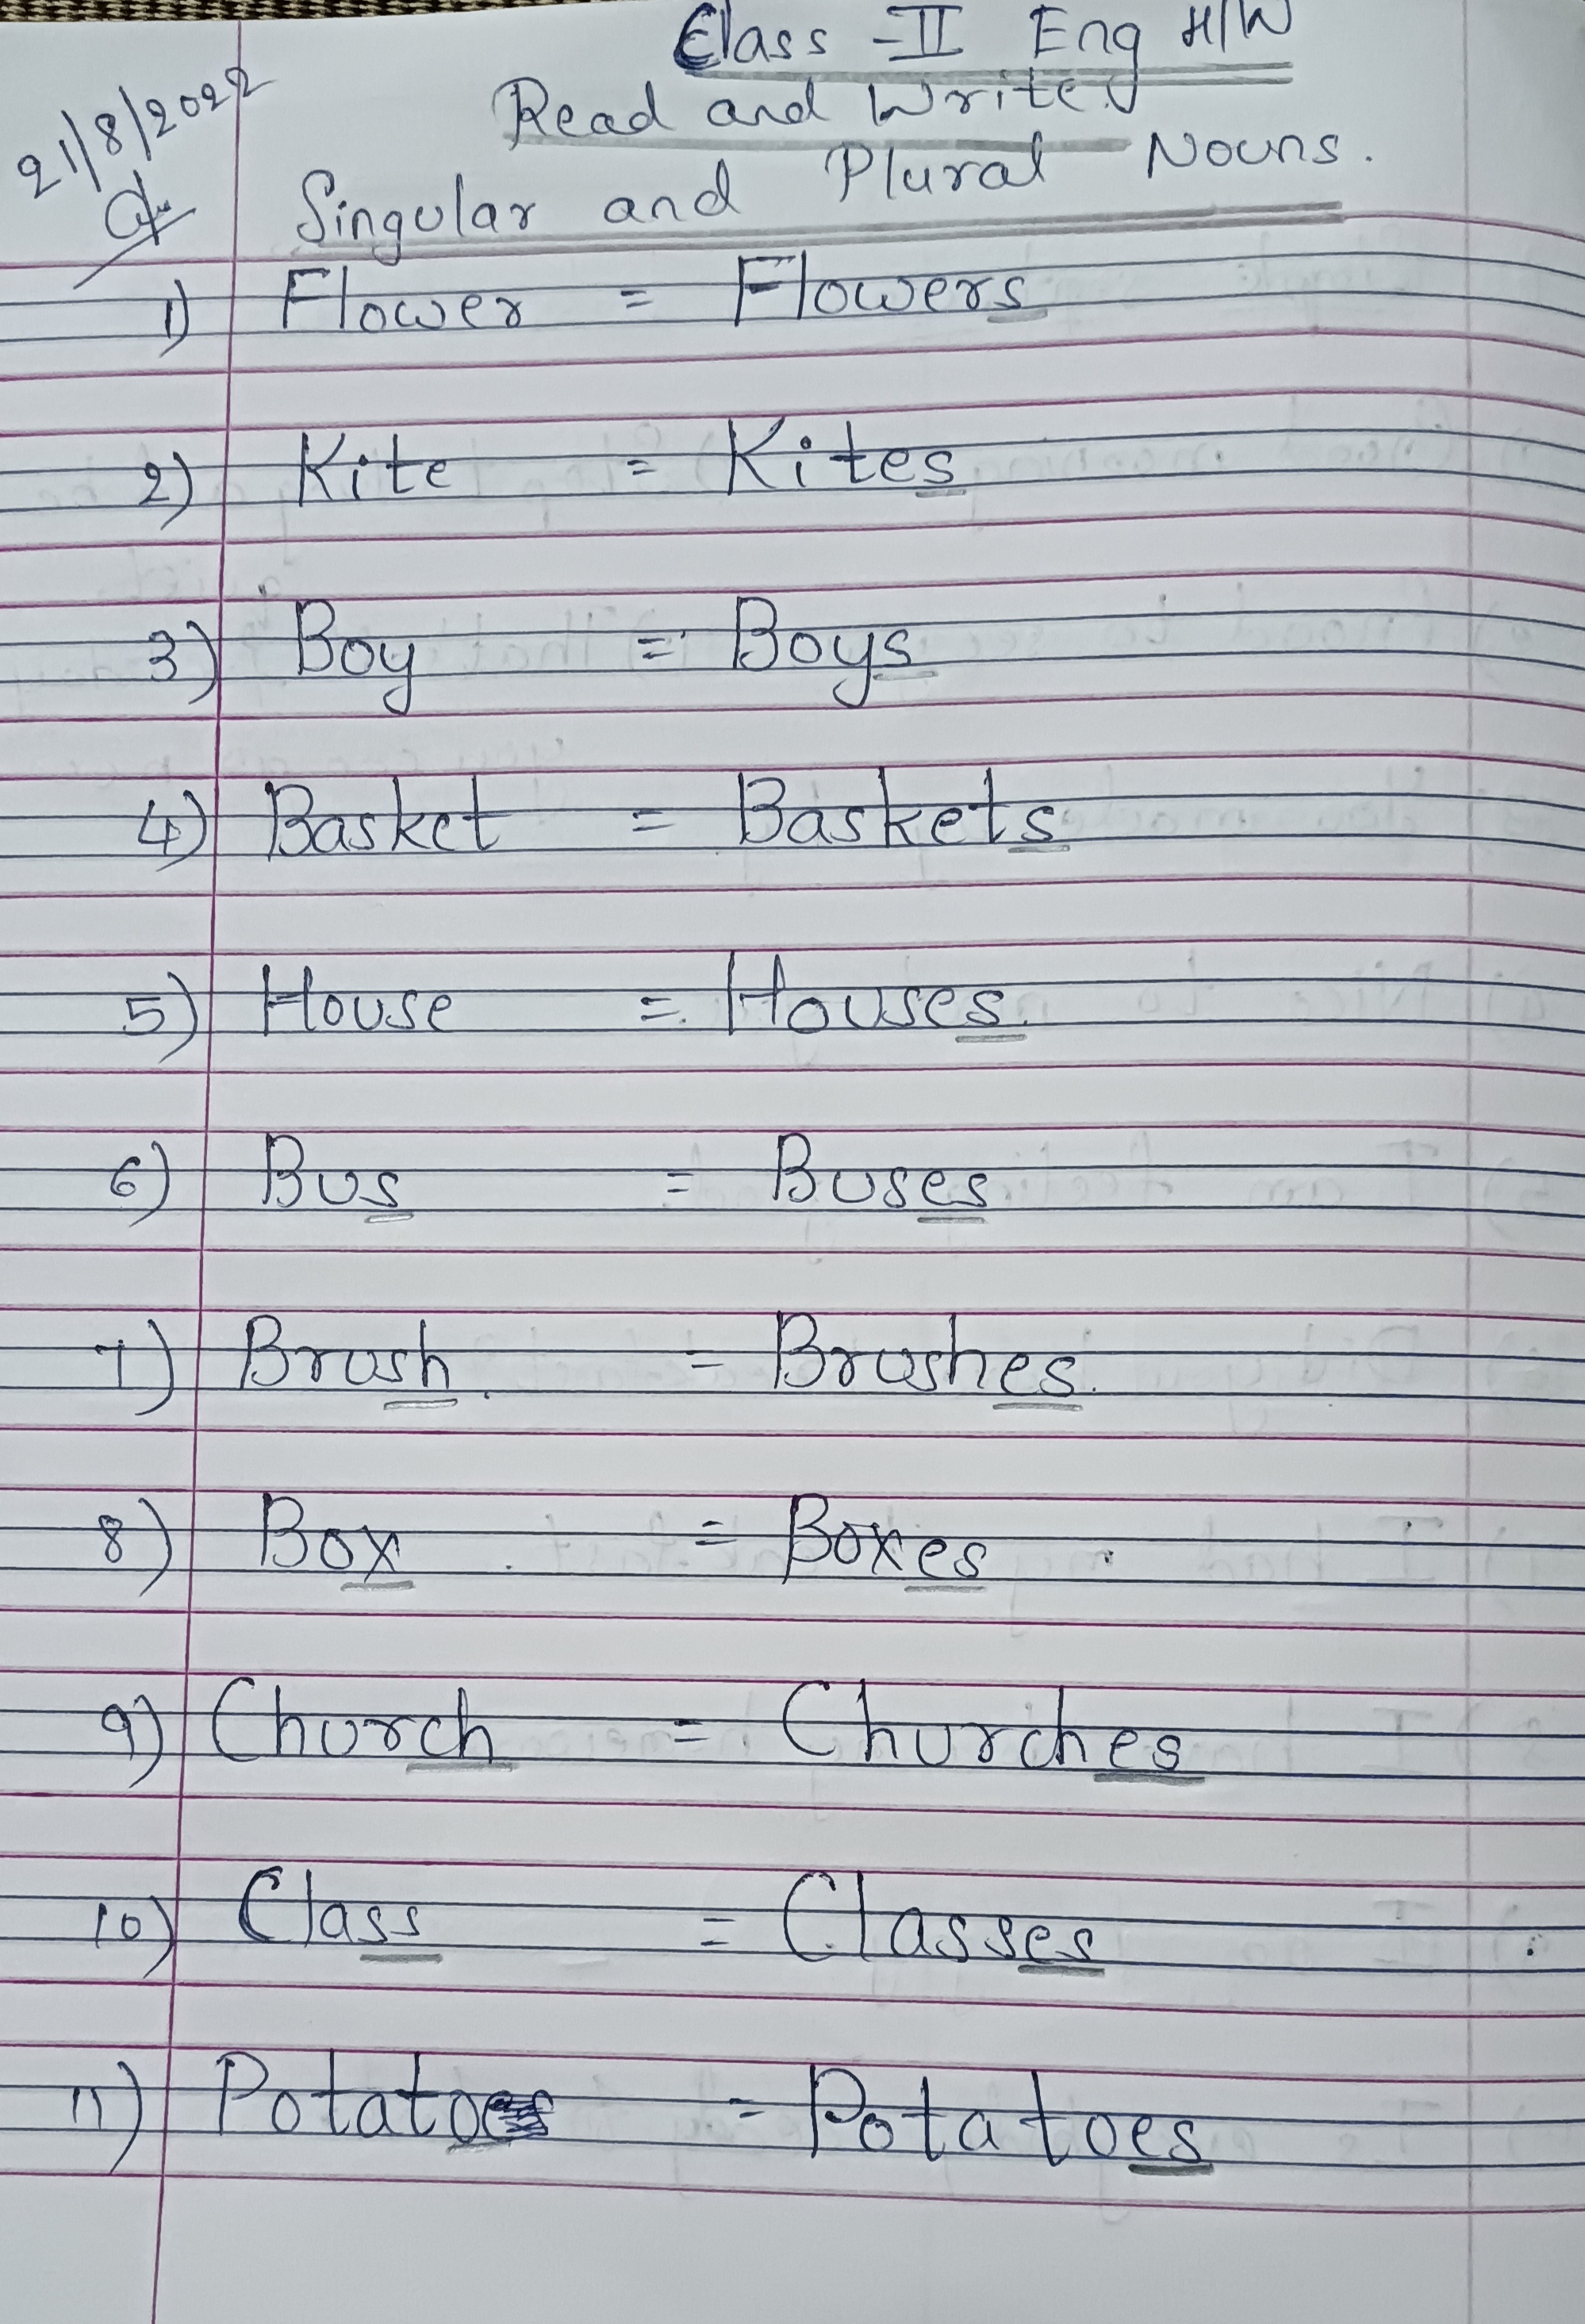 Class - II Eng H/W
21/8/2022
Read and Write.
Singular and Plural Nouns.
1) Flower = Flowers
2) Kite = Kites
3) Boy = Boys
4) Basket = Baskets
5) House = Houses.
6) Bus = Buses
7) Brush. = Brushes.
8) Box = Boxes
9) Church = Churches
10) Class = Classes
11) Potato = Potatoes